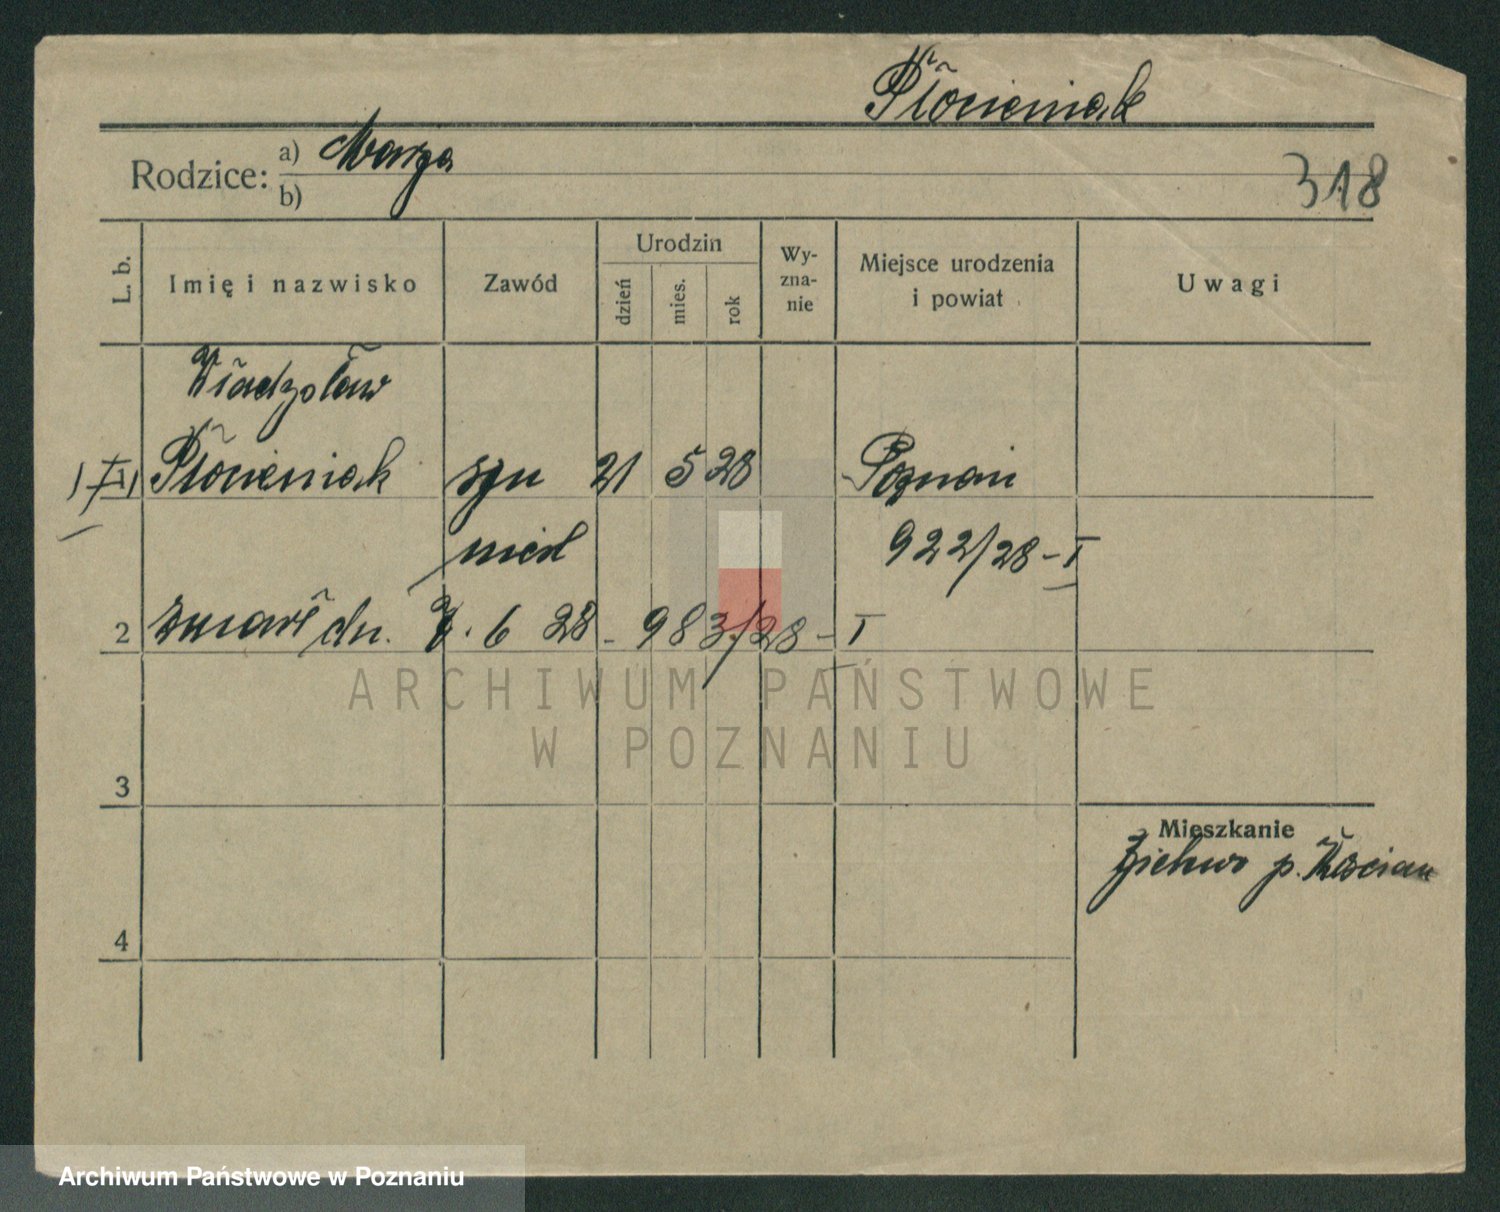 Płocieniak
Rodzice: a) Marja
b)
318
L. b. Imię i nazwisko Zawód Urodzin dzień mies. rok Wy-zna-nie Miejsce urodzenia i powiat Uwagi
Władysław
Płocieniak syn 21 5 28 Poznań
nieśl 922/28 - I
2 zmarł dn. 7. 6 28 - 983/28 - I
ARCHIWUM PAŃSTWOWE
W POZNANIU
3
Mieszkanie
p. Kościan
4
Archiwum Państwowe w Poznaniu